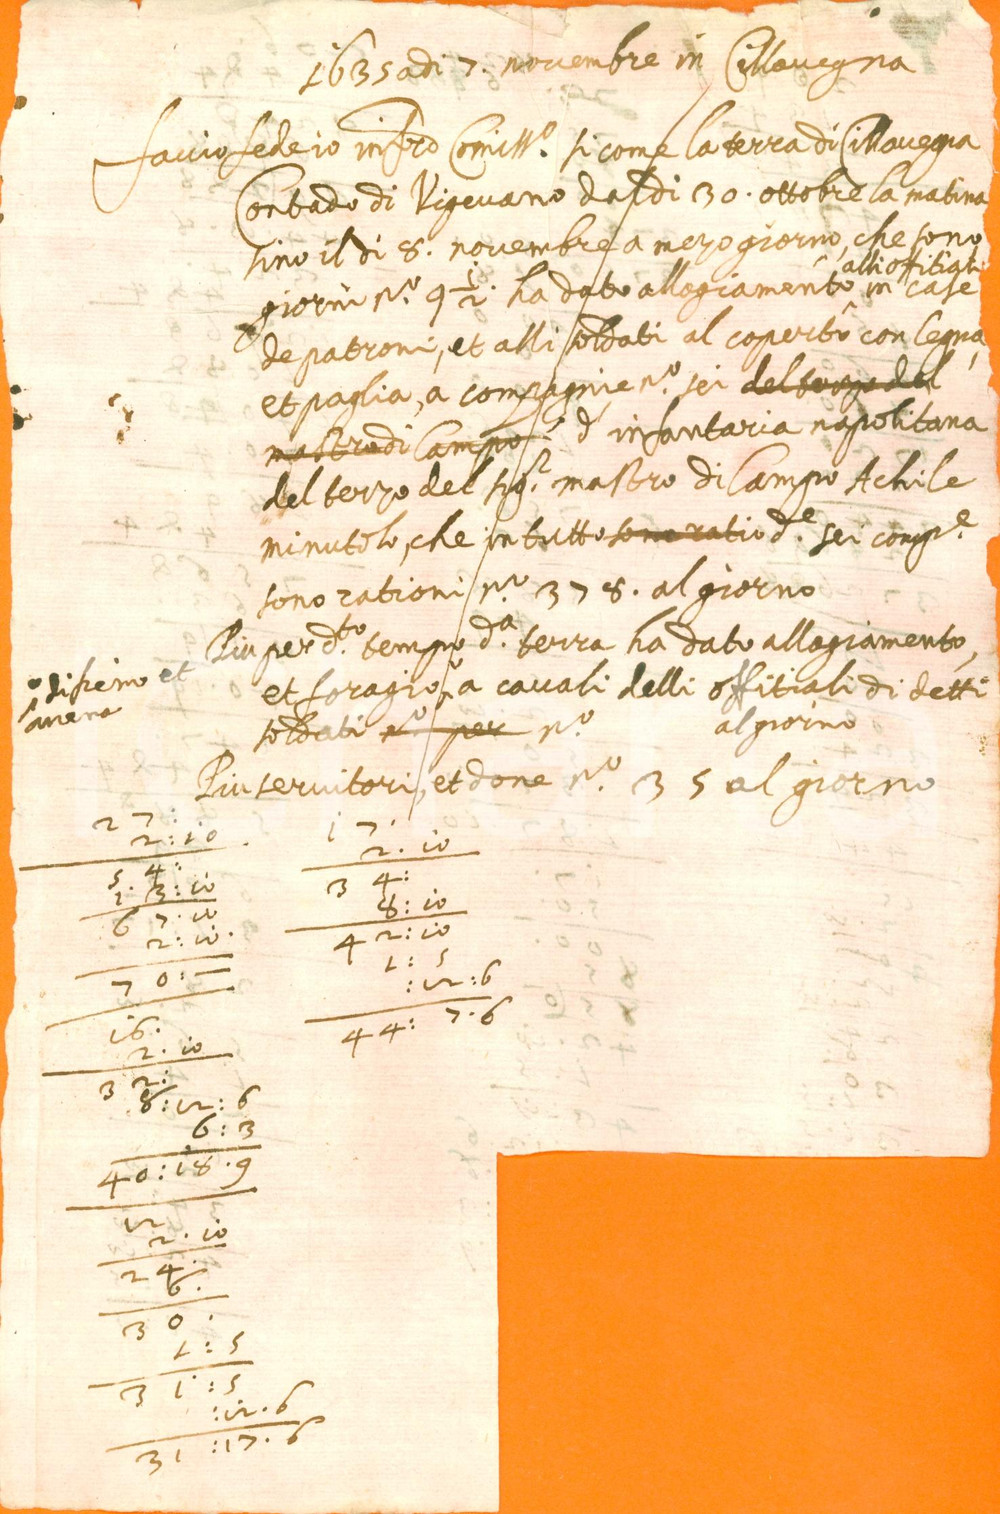 1635 adi 7. novembre in Cillavegna
faccio fede io infro Comiss.o si come la terra di Cillavegna
Contado di Vigevano dal di 30. ottobre la matina
sino il di 8. novembre a mezo giorno, che sono
alli offitiali
giorni n.o 9 1/2. ha dato allogiamento in case
de patroni, et alli soldati al coperto con legna,
et paglia, a compagnie n.o sei del terzo del
mastro di Campo d' infantaria napolitana
del terzo del sig.r mastro di Campo Achile
minutolo, che in tutto sono ratio d.e sei comp.e
sono rationi n.o 378. al giorno
Piu per d.to tempo d.a terra ha dato allogiamento,
et foragio, a cavali delli offitiali di detti
di fieno et
avena
soldati n.o per n.o al giorno
Piu servitori, et done n.o 35 al giorno
27:
2:10
54:
13:10
67.10
2:10.
70:—
16.
2.10
32:
8:12:6
6:3
40:18.9
12
2.10
24.
6.
30.
1:5
31:5
:12.6
31:17.6
17.
2.10
34:
8:10
42:10
1:5
:12:6
44:7.6